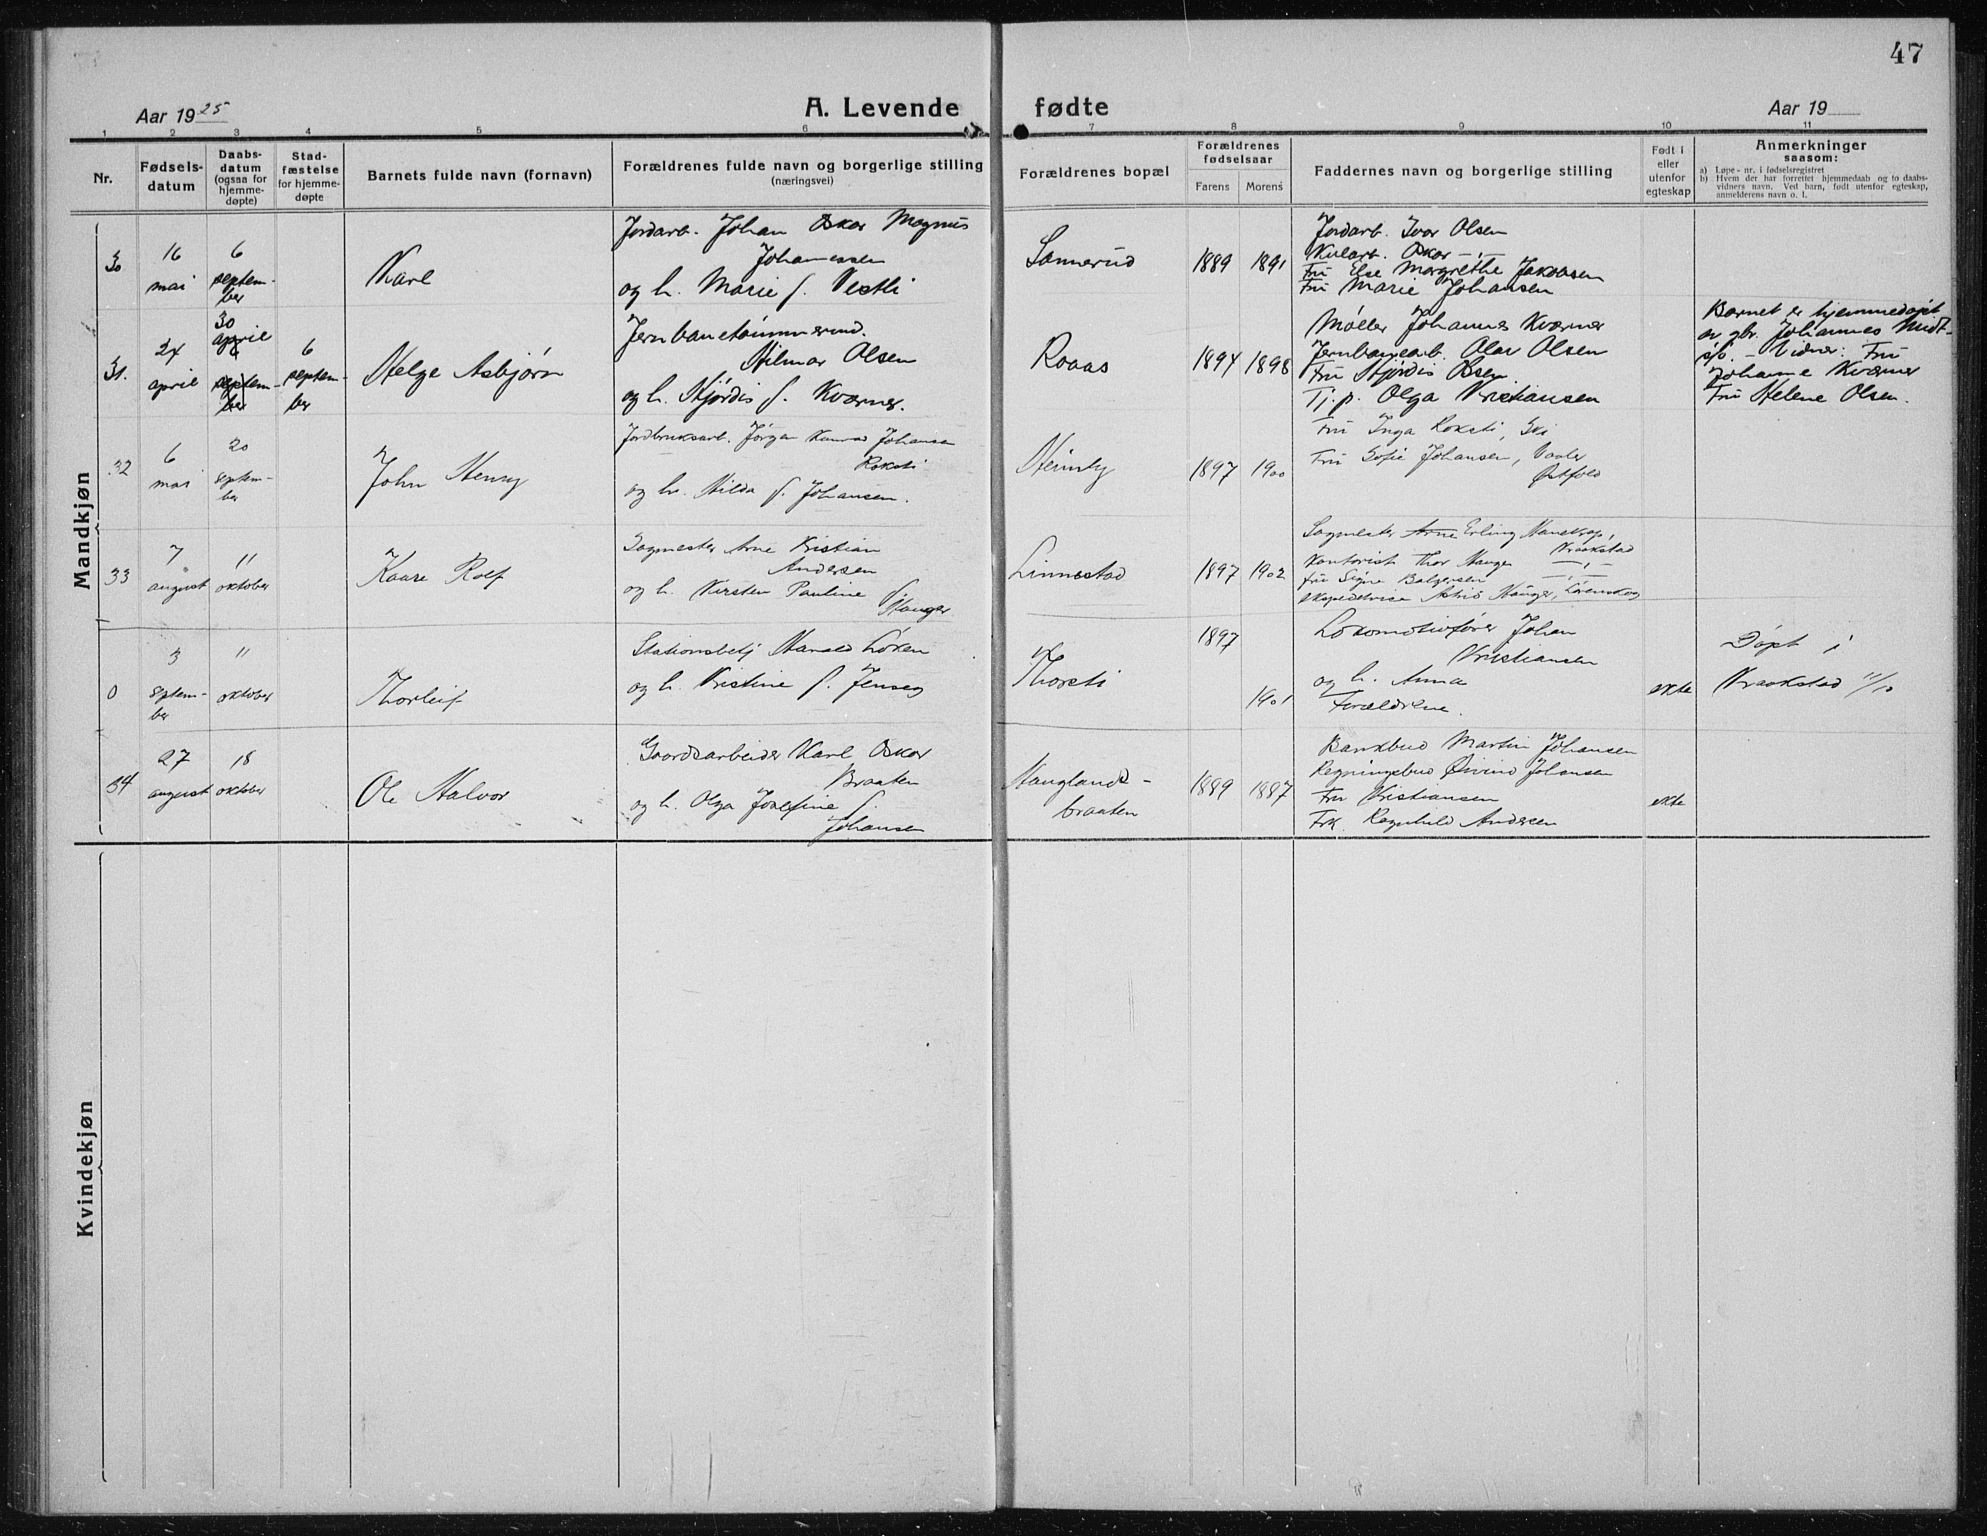 47
Aar 1925
A. Levende fødte
Aar 19
1 2 3 4 5 6 7 8 9 10 11
Nr.
Fødsels-
datum
Daabs-
datum
(ogsaa for
hjemme-
døpte)
Stad-
fæstelse
for hjemme-
døpte
Barnets fulde navn (fornavn)
Forældrenes fulde navn og borgerlige stilling
(næringsvei)
Forældrenes bopæl
Forældrenes
fødselsaar
Farens
Morens
Faddernes navn og borgerlige stilling
Født i
eller
utenfor
egteskap
Anmerkninger
saasom:
a) Løpe-nr. i fødselsregistret
b) Hvem der har forrettet hjemmedaab og to daabs-
vidners navn. Ved barn, født utenfor egteskap,
anmelderens navn o. l.
Mandkjøn
30
16
mai
6
septem-
ber
Karl
Jordarb. Johan Oskar Magnus
Johannessen
og h. Marie f. Vestli
Sannerud
1889
1891
Jordarb. Ivar Olsen
Oskar —"—
Fru Else Margrethe Jakobsen
Fru Marie Johansen
31.
24
april
30
april
6
septem-
ber
6
septem-
ber
Helge Asbjørn
Jernbanetømmermd.
Hilmar Olsen
og h. Hjørdis f. Kværner.
Roaas
1894
1898
Møller Johannes Kværner
Jernbanearb. Olav Olsen
Fru Hjørdis Olsen
Tj.p. Olga Kristiansen
Barnet er hjemmedøpt
av gbr. Johannes Midt-
sjø. – Vidner: Fru
Johanne Kværner
Fru Helene Olsen.
32
6
mai
20
septem-
ber
John Henry
Jordbruksarb. Jørgen Konrad Johansen
Roksti
og h. Hilda f. Johansen.
1897
1900
Fru Inga Roksti, Ski
Fru Sofie Johansen, Vaaler
Østfold
33
7
august
11
oktober
Kaare Rolf
Sagmester Arne Kristian
Andersen
og h. Kirsten Pauline f.
Hauger
Linnestad
1897
1902
Sagmester Arne Erling
Kraakstad
Kontorist Thor Hauger —"—
fru Signe —"—
Astrid Hauger, Lørenskog
0
3
septem-
ber
11
oktober
Thorleif
Stationsbetj Harald Løken
og h. Kristine f. Jenseg
Thorsti
1897
1901
Lokomotivfører Johan
Kristiansen
og h. Anna
Forældrene.
ekte
Døpt i
Kraakstad 11/10
34
27
august
18
oktober
Ole Halvor
Gaardsarbeider Karl Oskar
Braaten
og h. Olga Josefine f.
Johansen
Hauglands-
braaten
1889
1887
Bankbud Martin Johansen
Regningsbud Øivind Johansen
Fru Kristiansen
Frk. Ragnhild Andersen
ekte
Kvindekjøn